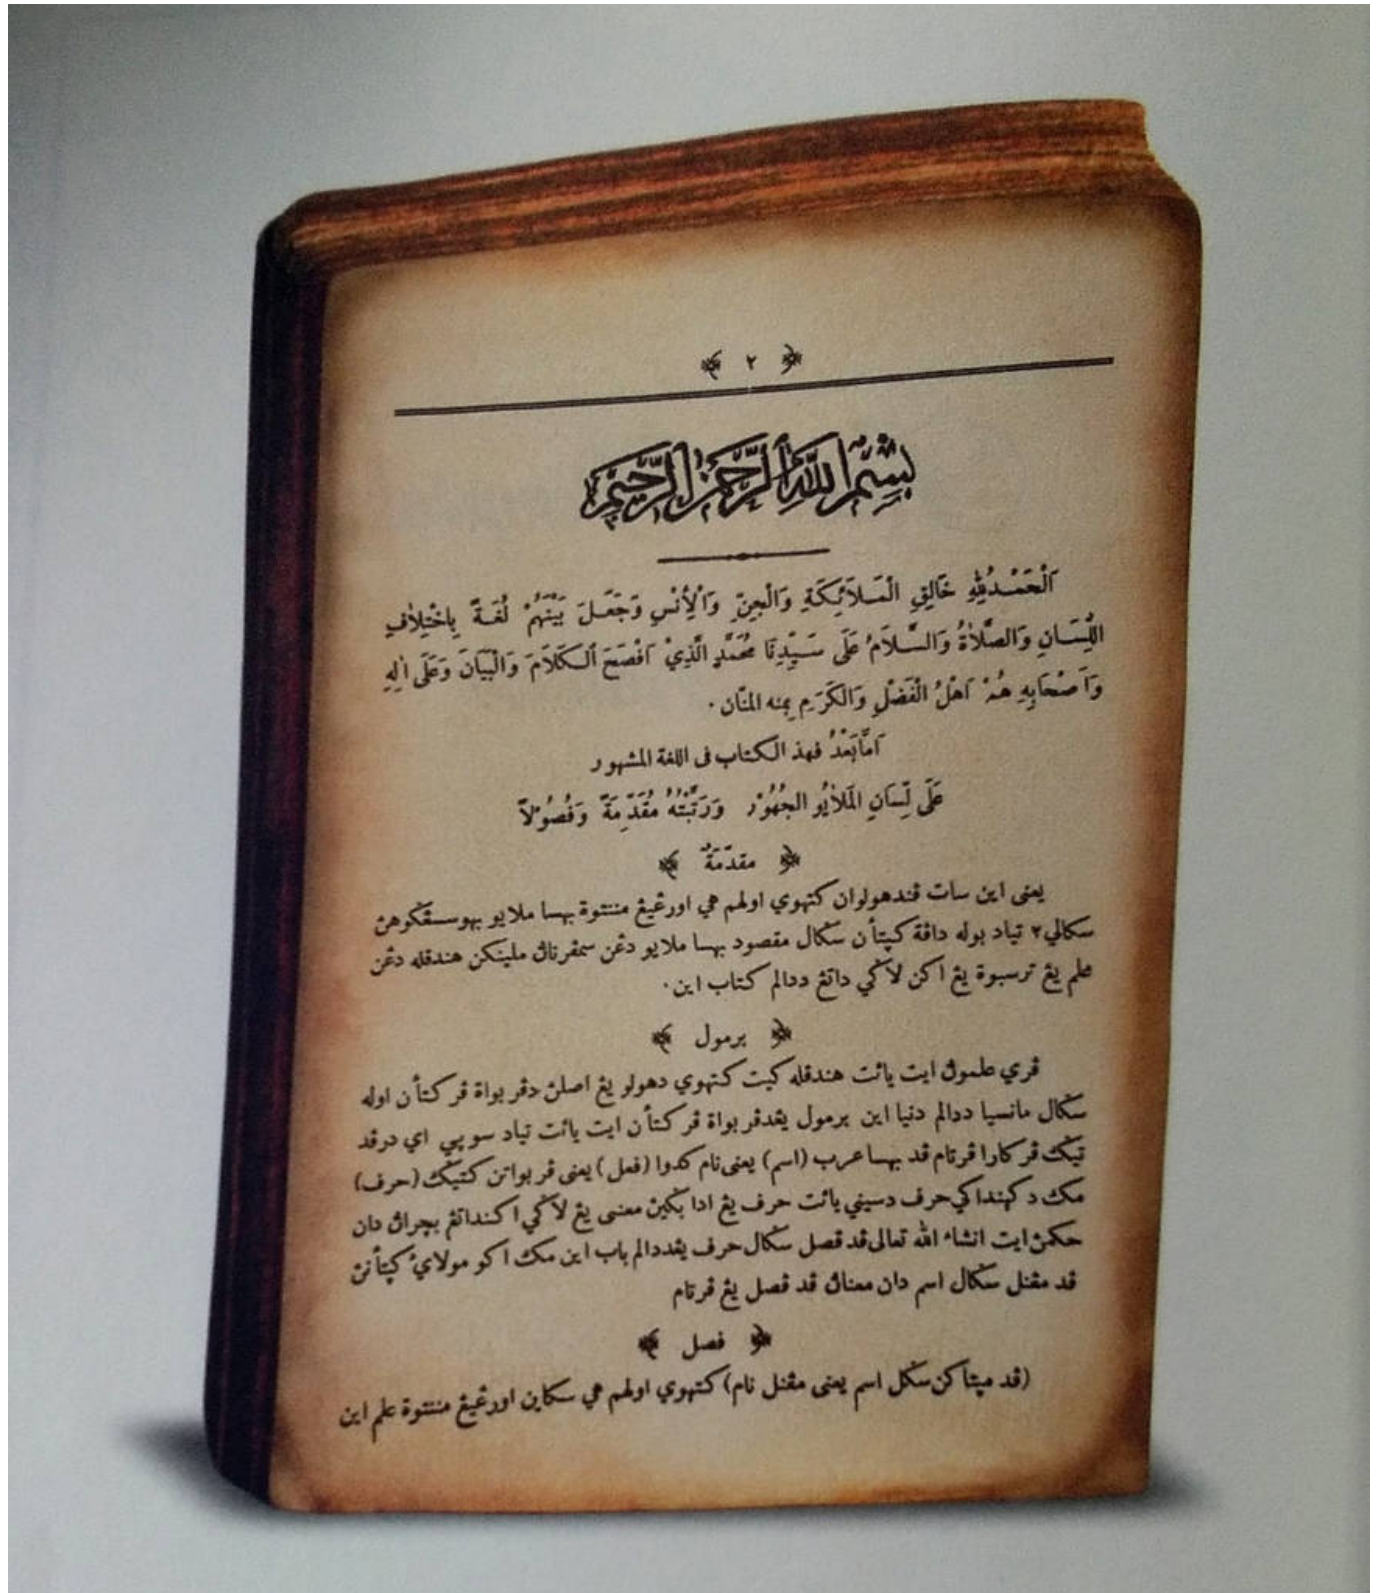 ﴿ ٢ ﴾
بِسْمِ اللَّهِ الرَّحْمَنِ الرَّحِيمِ
اَلْحَمْدُ لِلّٰهِ خَالِقِ الْمَلَائِكَةِ وَالْجِنِّ وَالْأِنْسِ وَجَعَلَ بَيْنَهُمْ لُغَةً بِاخْتِلَافِ
اللِّسَانِ وَالصَّلَاةُ وَالسَّلَامُ عَلَى سَيِّدِنَا مُحَمَّدٍ الَّذِيْ اَفْصَحَ الْكَلَامَ وَالْبَيَانَ وَعَلَى اٰلِهِ
وَاَصْحَابِهِ هُمْ اَهْلُ الْفَضْلِ وَالْكَرَمِ بِمنه المنّان .
اَمَّابَعْدُ فهذ الكتاب فى اللغة المشهور
عَلَى لِّسَانِ الْمَلَايُو الجُهُوْر وَرَتَّبْتُهُ مُقَدِّمَةً وَفُصُوْلاً
﴿ مقدّمَةٌ ﴾
يعنى اين سات ڤندهولوان كتهوي اولهم هي اورڠيڠ منتتوة بهسا ملايو بهوسڠݢوهڽ
سكالي٢ تياد بوله داڤة كڽتأن سݢال مقصود بهسا ملايو دڠن سمڤرناڽ ملينكن هندقله دڠن
علم يڠ ترسبوة يڠ اكن لاݢي داتڠ ددالم كتاب اين .
﴿ برمول ﴾
ڤري علموڽ ايت يائت هندقله كيت كتهوي دهولو يڠ اصلڽ دڤربواة ڤركتأن اوله
سݢال مانسيا ددالم دنيا اين برمول يڠدڤربواة ڤركتأن ايت يائت تياد سوڽي اي درڤد
تيݢ ڤركارا ڤرتام ڤد بهسا عرب (اسم) يعنى نام كدوا (فعل) يعنى ڤربواتن كتيݢ (حرف)
مك دكهنداكي حرف دسيني يائت حرف يڠ ادا بݢيڽ معنى يڠ لاݢي اكنداتڠ بچراڽ دان
حكمڽ ايت انشاء الله تعالى ڤد ڤصل سݢال حرف يڠددالم باب اين مك اكو مولاي كڽتأنڽ
ڤد مڠنل سݢال اسم دان معناڽ ڤد ڤصل يڠ ڤرتام
﴿ فصل ﴾
(ڤد مڽتاكن سݢل اسم يعنى مڠنل نام) كتهوي اولهم هي سݢاين اورڠيڠ منتتوة علم اين